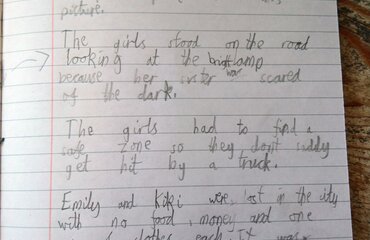 picture.
The girls stood on the road
looking at the bright lamp
because her sister was scared
of the dark.
The girls had to find a
safe zone so they don't
get hit by a truck.
Emily and Kiki were lost in the city
with no food, money and one
clothes each. It was